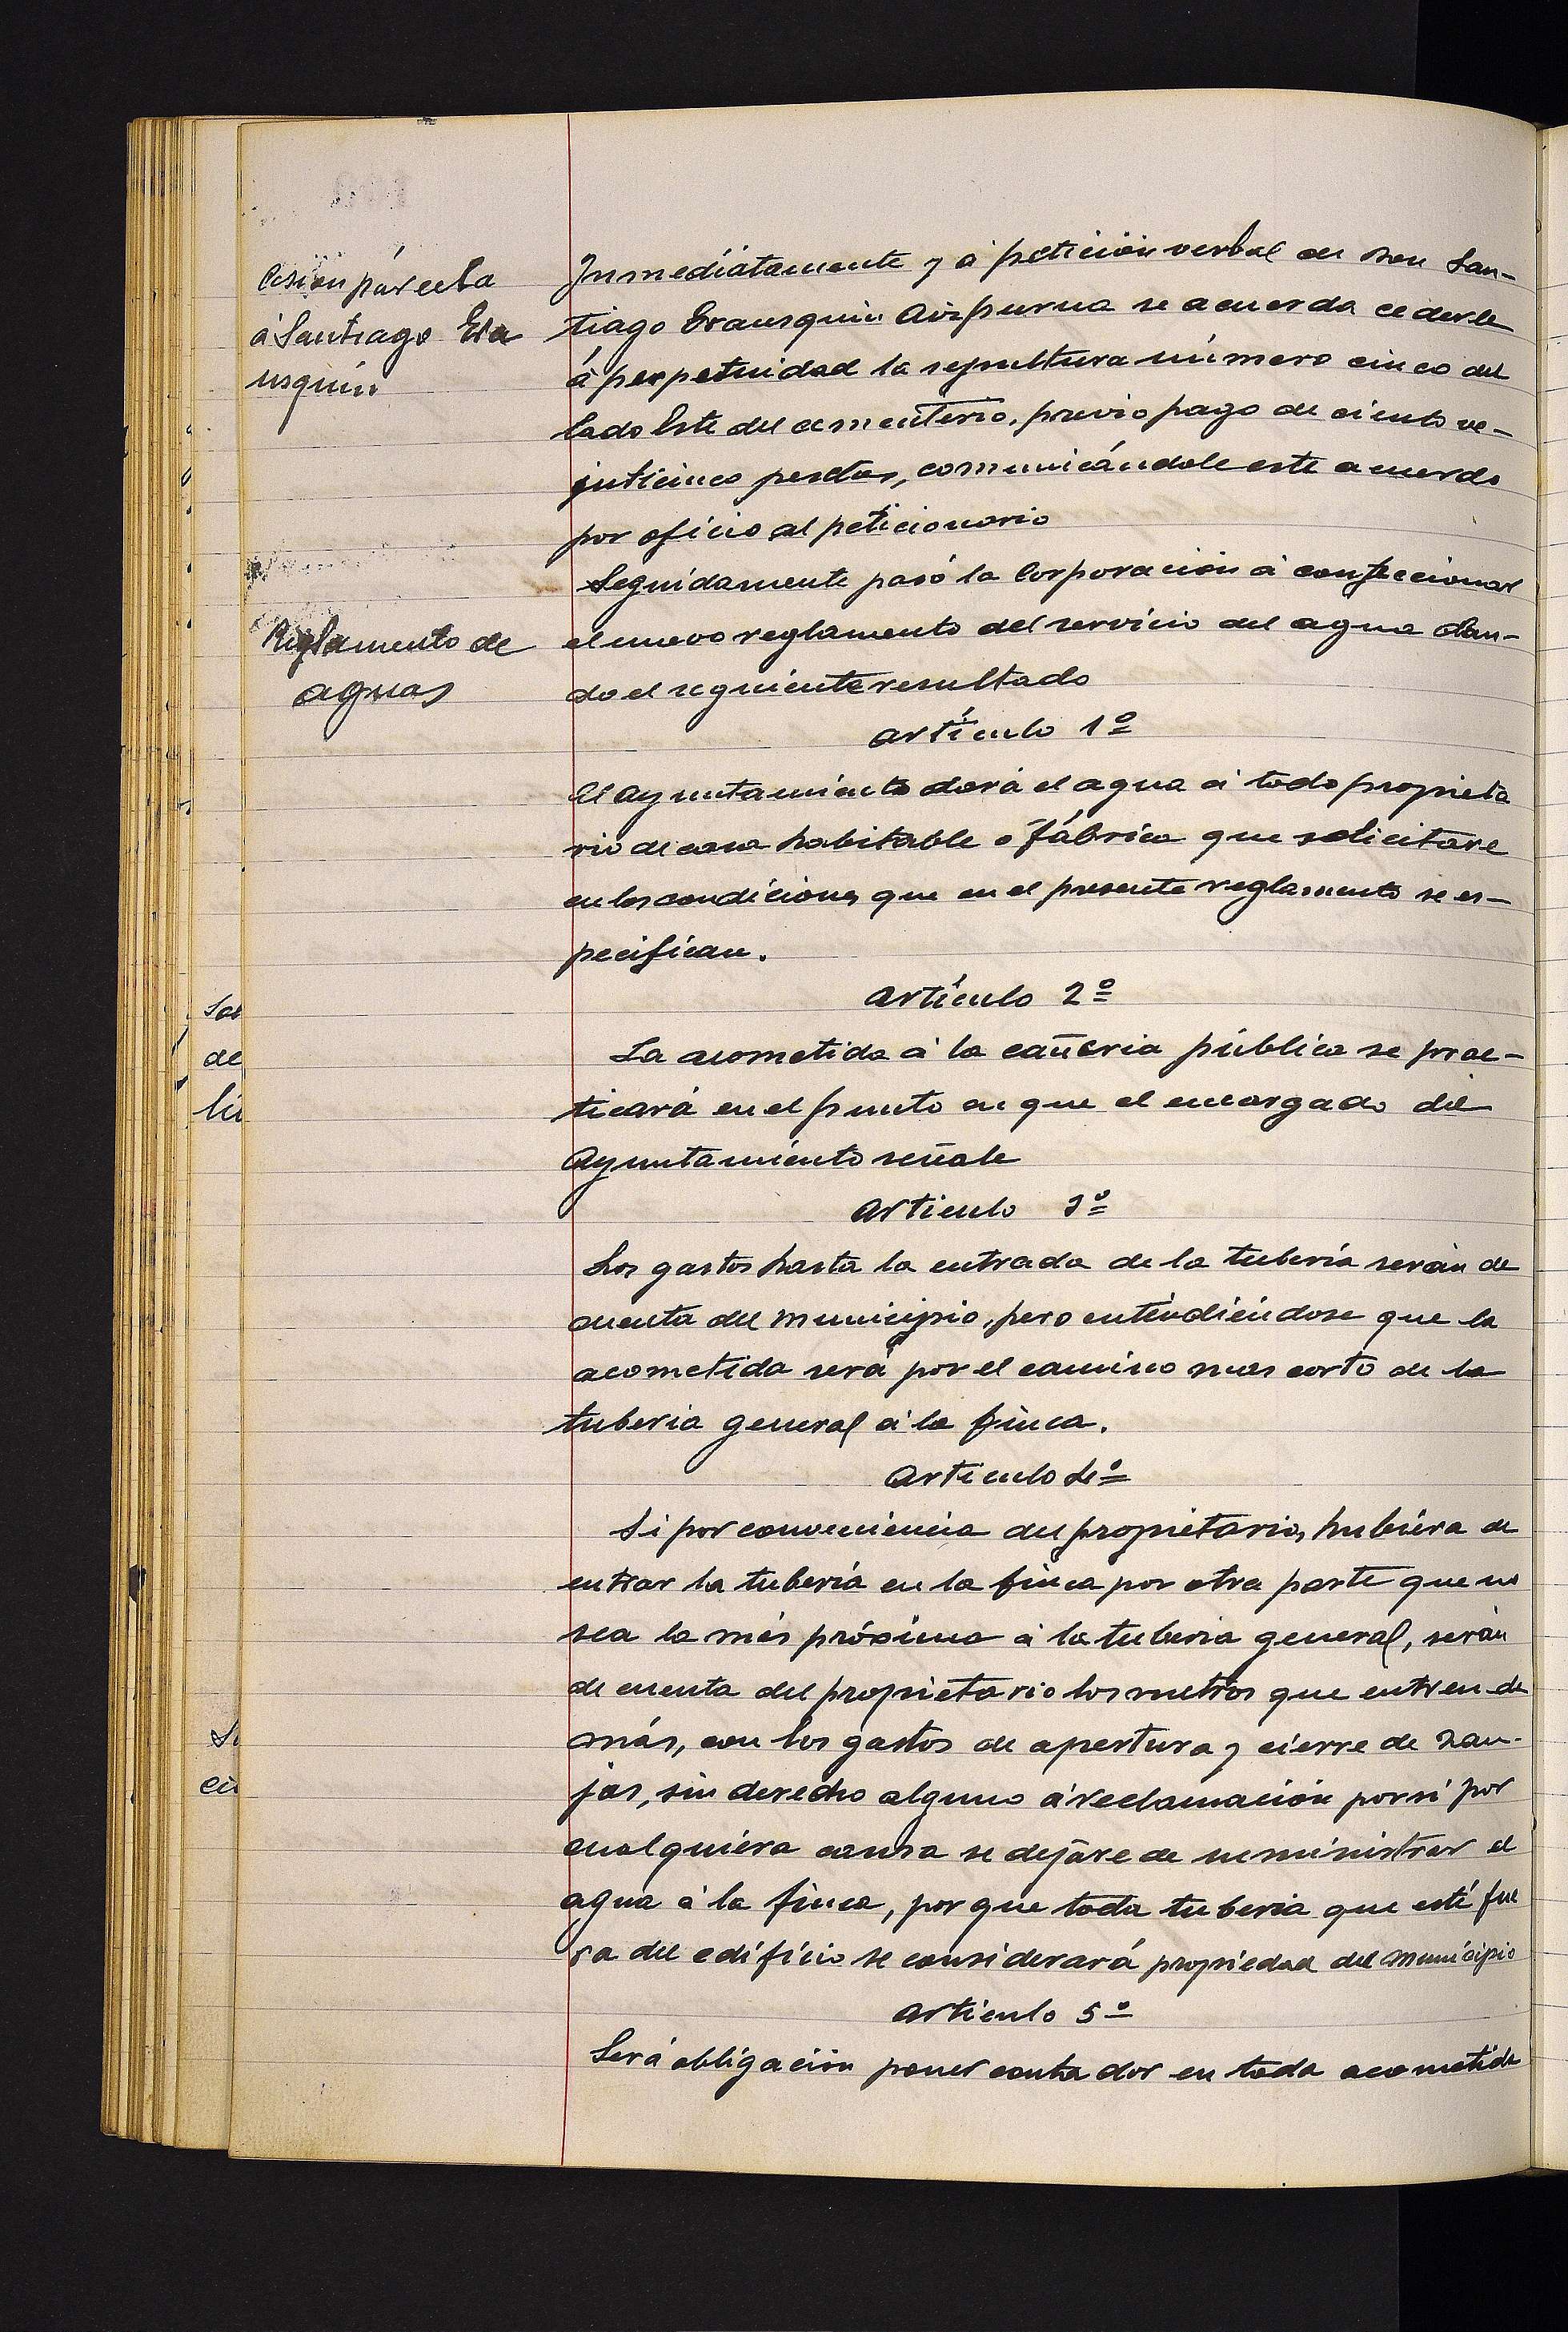 Cesión párcela
á Santiago Era
usquin
Inmediátamente y á petición verbal de Don San-
tiago Erausquin Aizpurua se acuerda cederle
á perpetuidad la sepultura número cinco del
lado Este del cementerio, previo pago de ciento ve-
inticinco pesetas, comunicándole este acuerdo
por oficio al peticionario
Seguidamente pasó la Corporación á confeccionar
Reglamento de
aguas
el nuevo reglamento del servicio del agua dan-
do el siguiente resultado
Artículo 1º
El Ayuntamiento dará el agua á todo propieta
rio de casa habitable ó fábrica que solicitare
en las condiciones que en el presente reglamento se es-
pecifican.
Artículo 2º
La acometida á la cañeria pública se prac-
ticará en el punto en que el encargado del
Ayuntamiento señale
Articulo 3º
Los gastos hasta la entrada de la tubería serán de
cuenta del Municipio, pero entendiéndose que la
acometida será por el camino mas corto de la
tuberia general á la finca.
Articulo 4º
Si por conveniencia del propietario, hubiera de
entrar la tubería en la finca por otra parte que no
sea la más próxima á la tuberia general, serán
de cuenta del propietario los metros que entren de
más, con los gastos de apertura y cierre de zan-
jas, sin derecho alguno á reclamación por si por
cualquiera causa se dejáre de suministrar el
agua á la finca, por que toda tuberia que esté fue
ra del edificio se considerará propiedad del Municipio
Articulo 5º
Será obligación poner contador en toda acometida